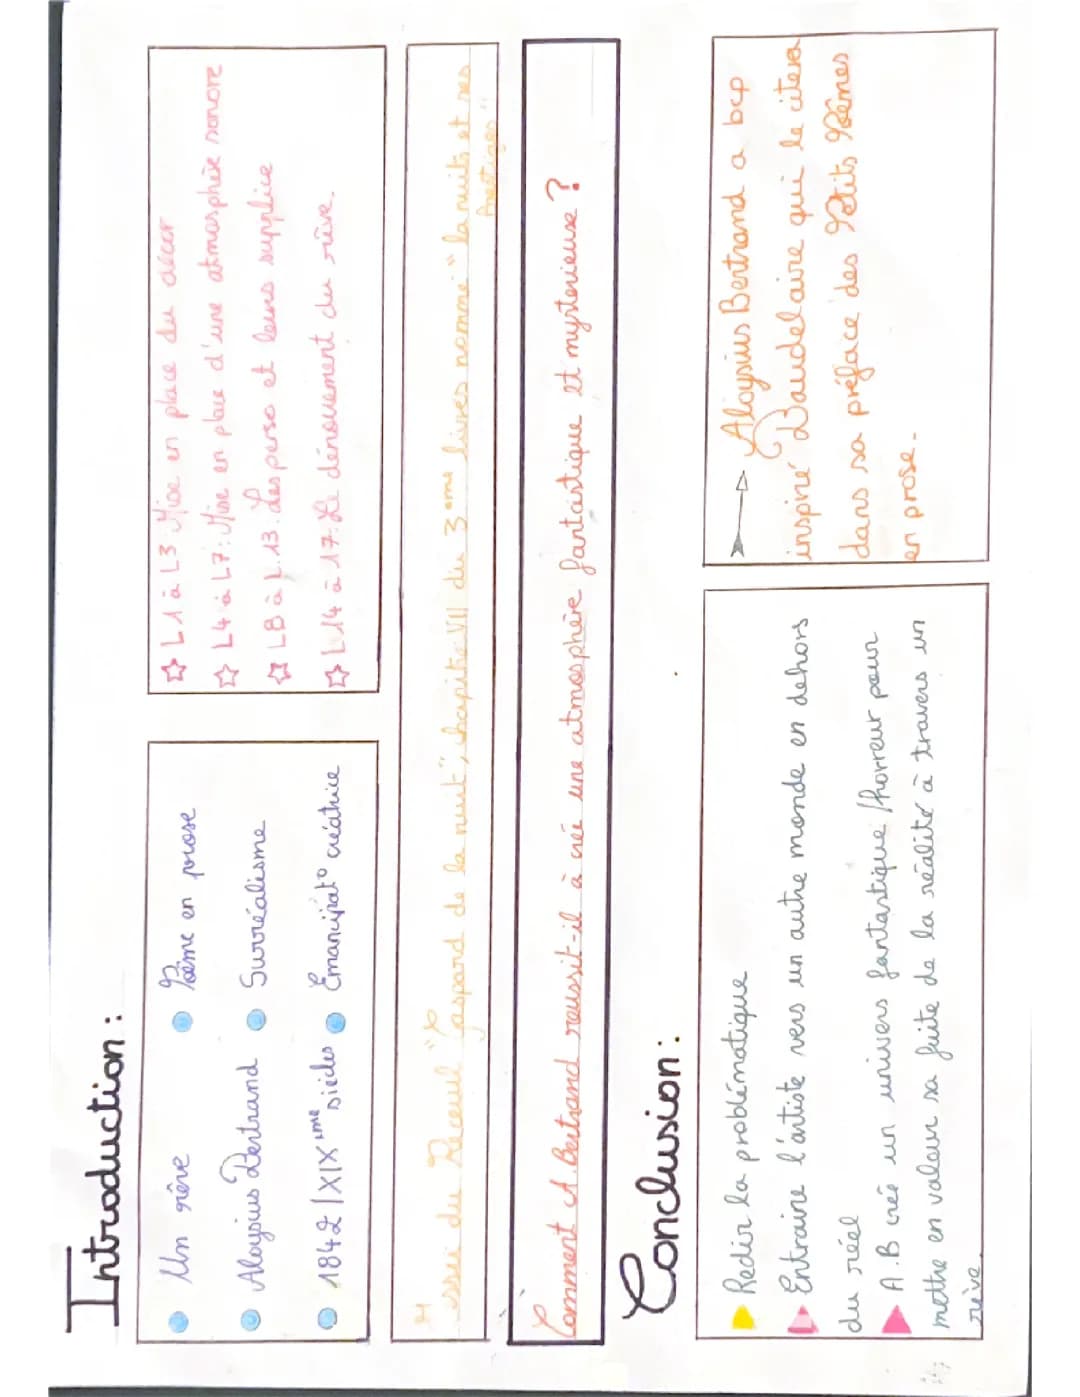 Introduction :
Un rêve
Aloysius Bertrand
1842 / XIXème siècles
Poème en prose
Surréalisme
Emancipat° créatrice
L1 à L3 Mise en place du décor
L4 à L7: Mise en place d'une atmosphère sonore
L8 à L.13. Les perso et leurs supplice
L14 à 17: Le dénouement du rêve.
issu du Receuil "Gaspard de la nuit", chapitre VII du 3eme livres nommé "la nuits et ses
Prestiges"
Comment A.Bertrand reussit-il à crée une atmosphère fantastique et mysterieuse ?
Conclusion :
Redir la problématique
Entraine l'artiste vers un autre monde en dehors
du réel
A.B crée un univers fantastique /horreur pour
mettre en valeur sa fuite de la réalité à travers un
rêve.
Aloysius Bertrand a bcp
inspiré Baudelaire qui le citera
dans sa préface des Petits Poèmes
en prose.